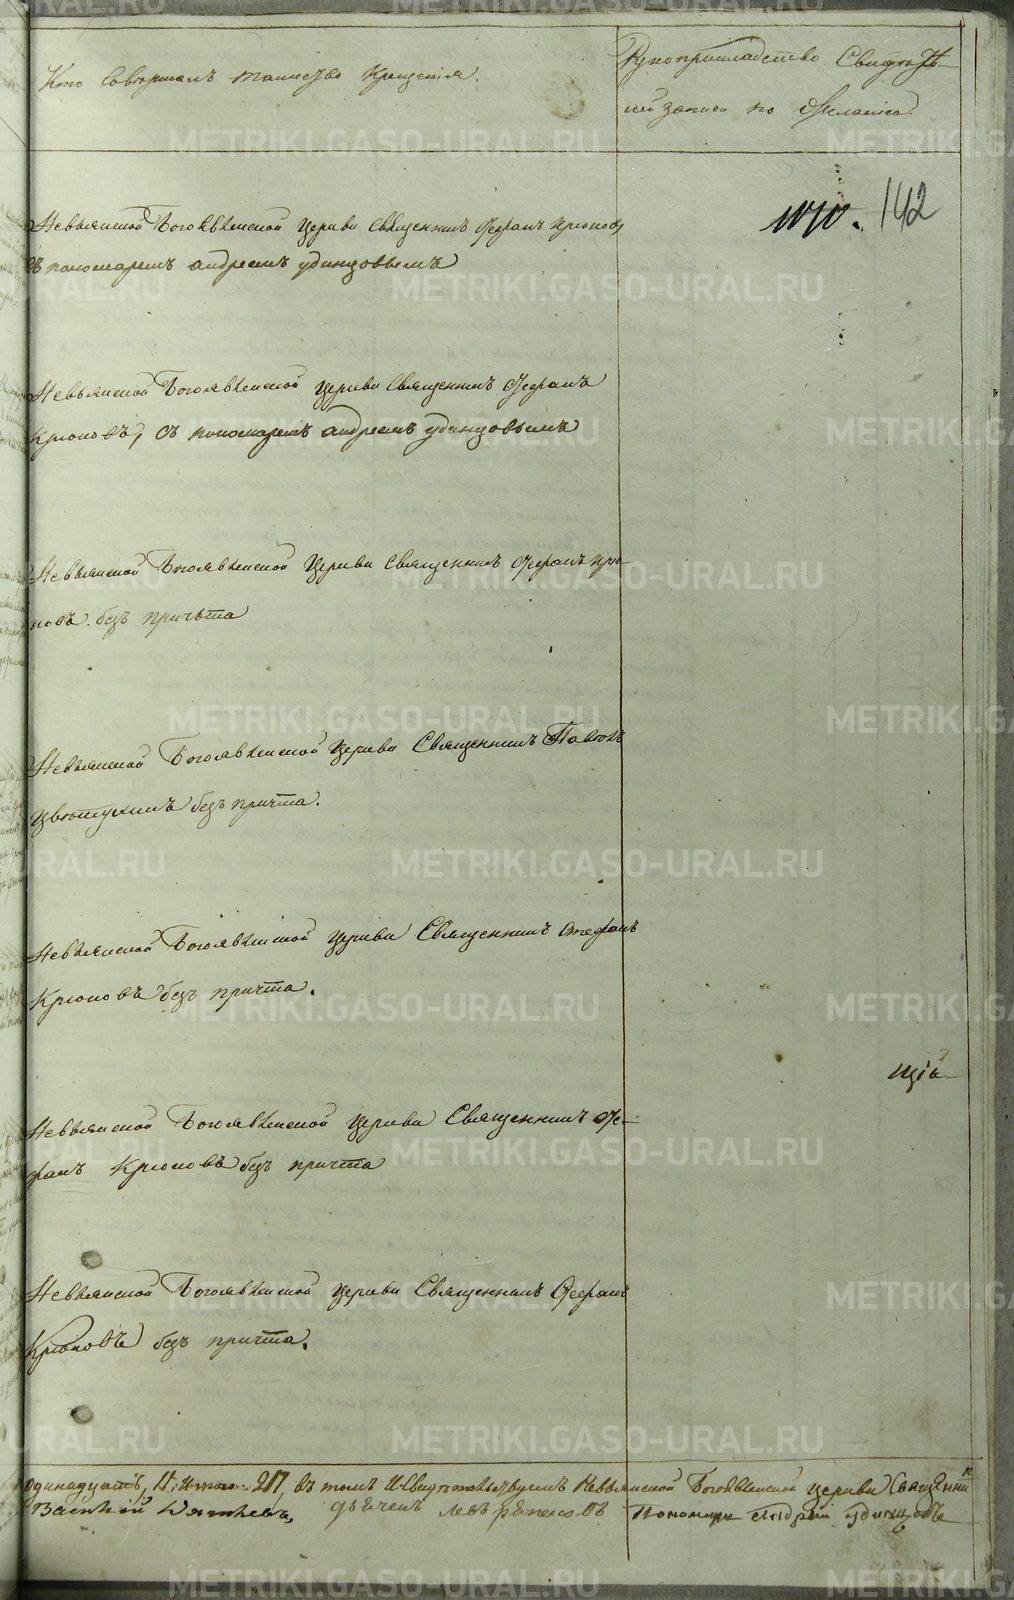 Кто совершалъ таинство крещенія.
Рукоприкладство Свидѣте-
лей записи по желанію.
1070. 142
Невьянской Богоявленской церкви священникъ Стефанъ Крюковъ
съ пономаремъ Андреемъ Удинцовымъ
Невьянской Богоявленской церкви священникъ Стефанъ
Крюковъ, съ пономаремъ Андреемъ Удинцовымъ
Невьянской Богоявленской церкви священникъ Стефанъ Крю-
ковъ. безъ причта
Невьянской Богоявленской церкви священникъ Павелъ
Цвѣтухинъ безъ причта.
Невьянской Богоявленской церкви Священникъ Стефанъ
Крюковъ безъ причта.
щіа
Невьянской Богоявленской церкви Священникъ Сте-
фанъ Крюковъ безъ причта
Невьянской Богоявленской церкви Священникъ Стефанъ
Крюковъ безъ причта.
одинадцать, 11, итого 217, въ томъ и свидѣтельствуемъ Невьянской Богоявленской церкви Священникъ
Василій дьячекъ Левъ Пономарь Андрей Удинцовъ
METRIKI.GASO-URAL.RU